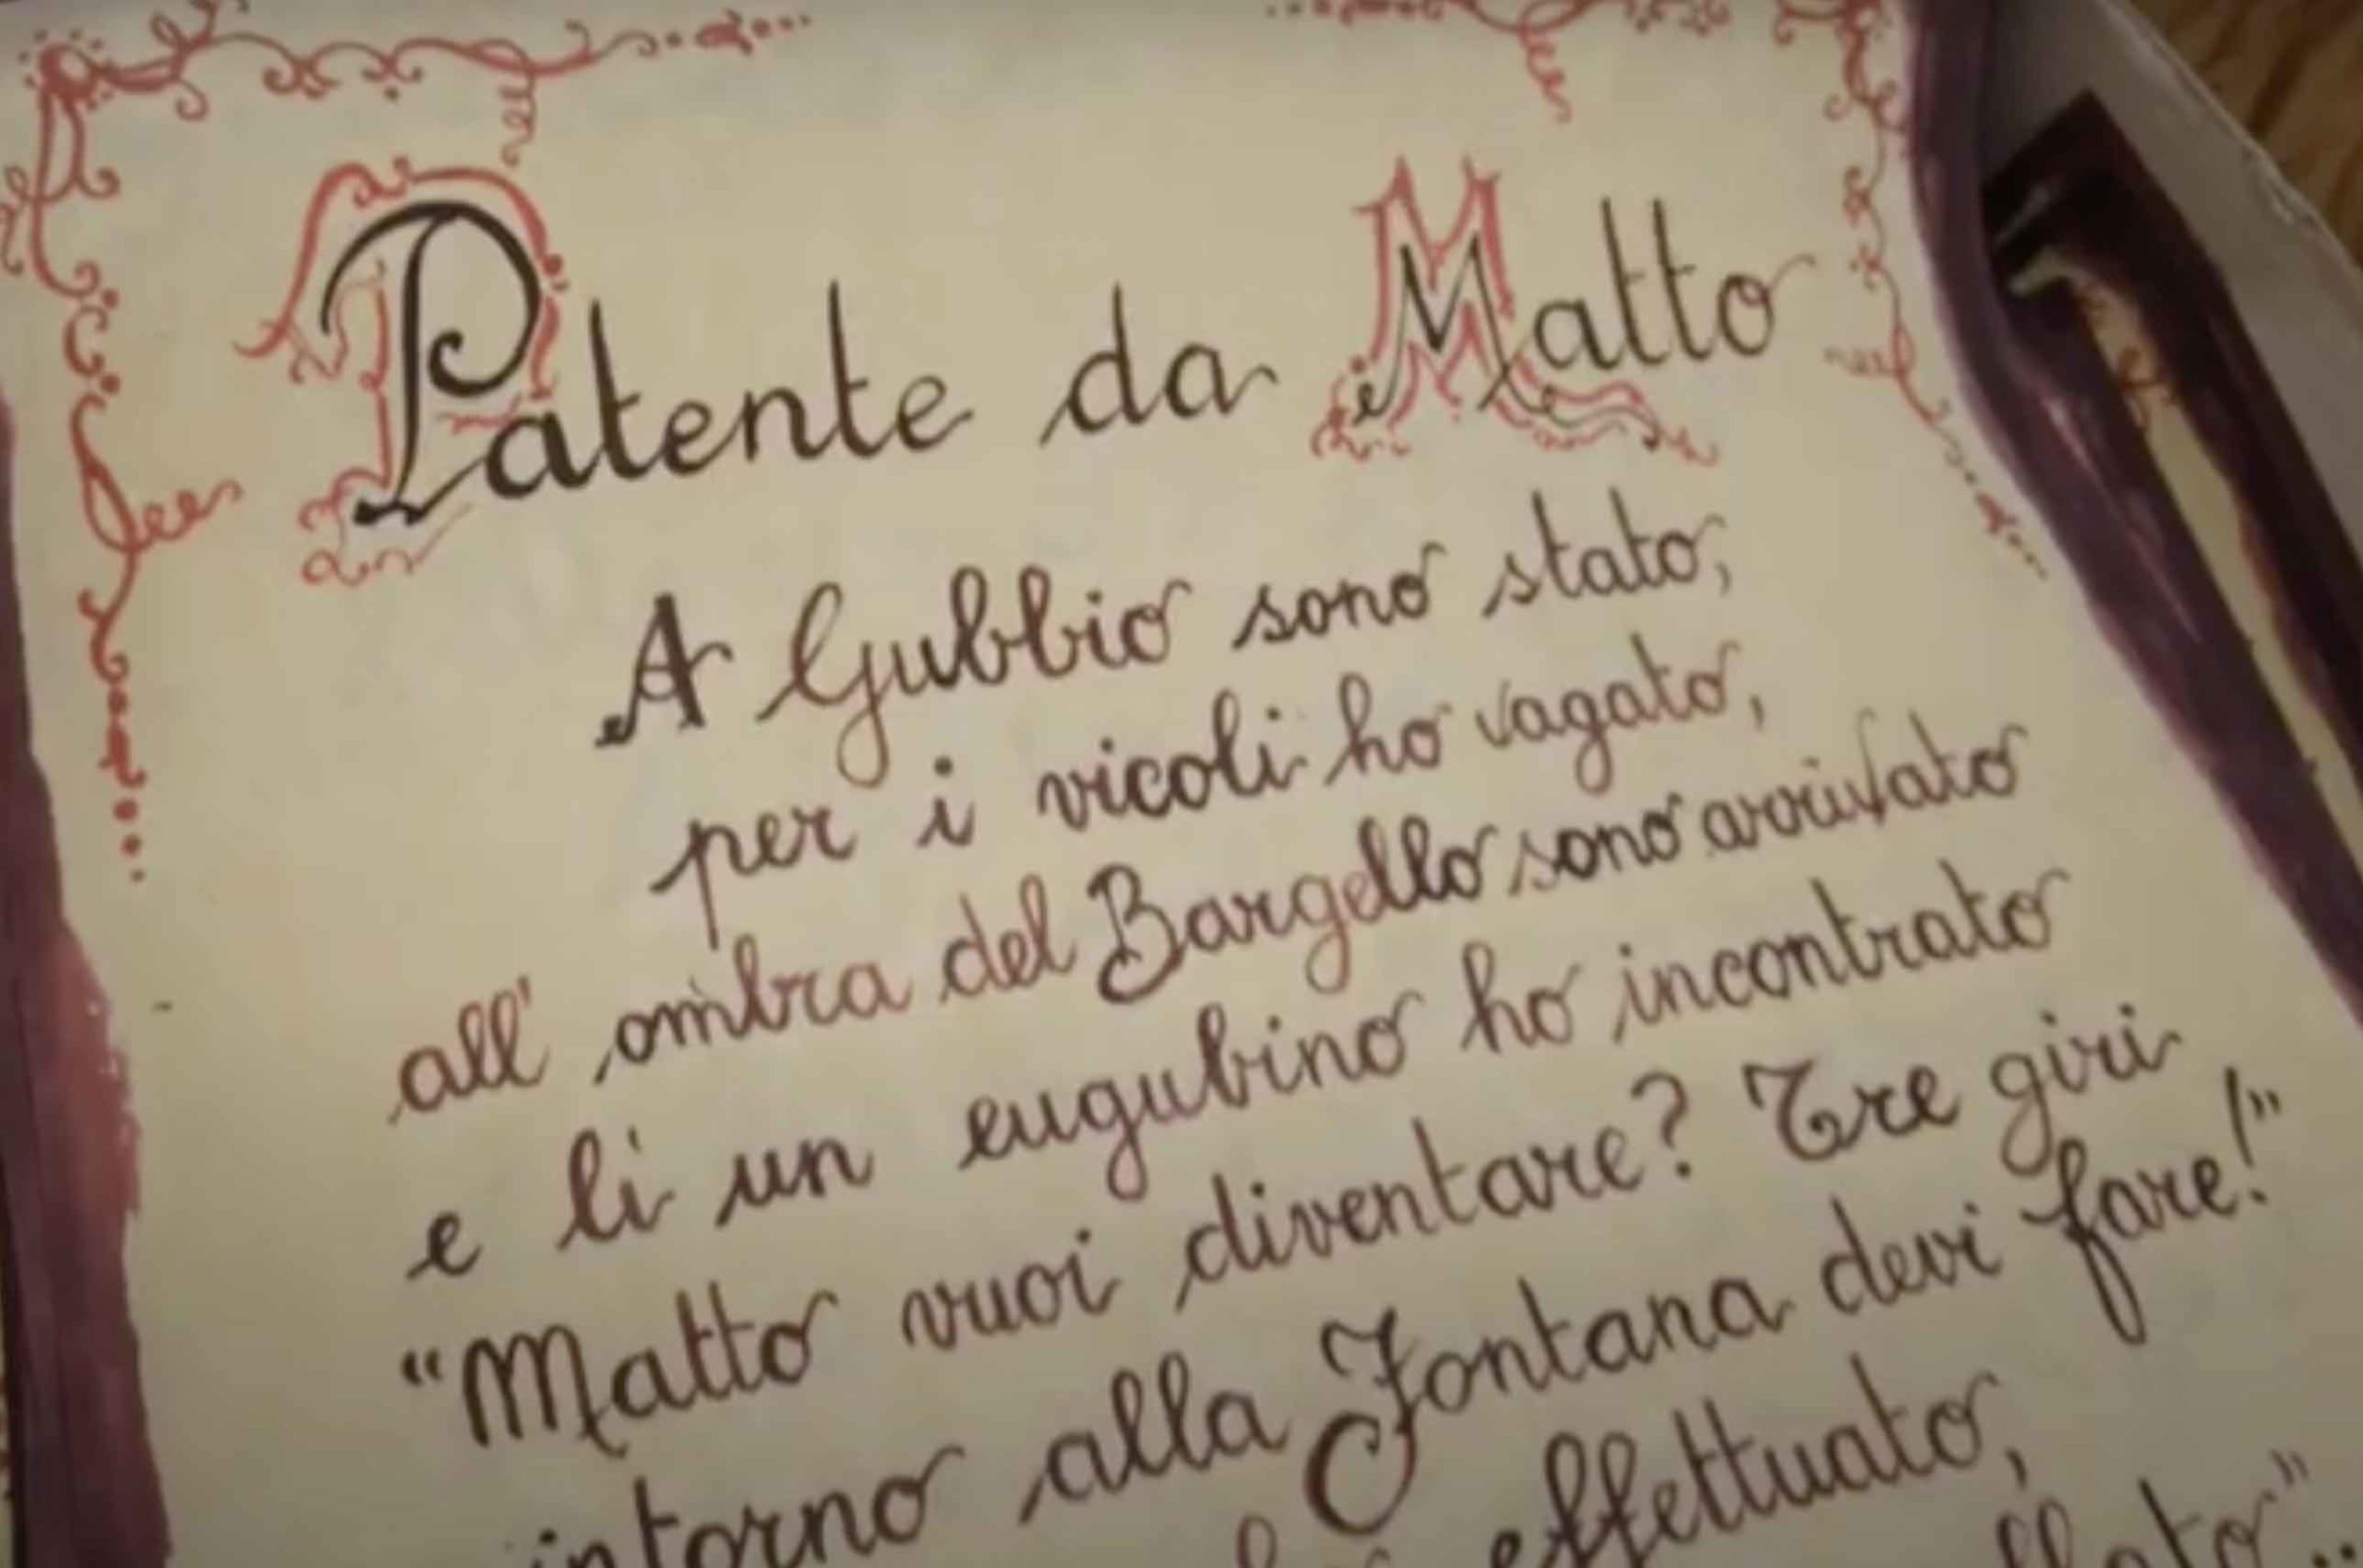 Patente da Matto
A Gubbio sono stato,
per i vicoli ho vagato,
all' ombra del Bargello sono arrivato
e lì un eugubino ho incontrato
"Matto vuoi diventare? Tre giri
intorno alla Fontana devi fare!"
effettuato,